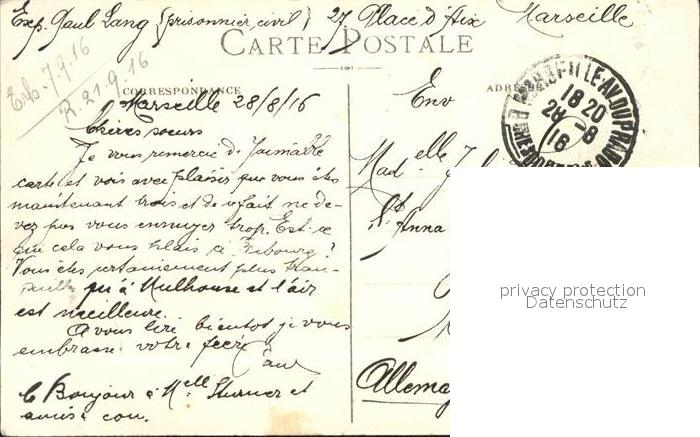 Exp. Paul Lang (prisonnier civil) 27 Place d'Aix Marseille
CARTE POSTALE
Erh. 7.9.16
R. 21.9.16
CORRESPONDANCE
ADRESSE
Marseille 28/8/16
Chères soeurs
Je vous remercie de l'aimable
carte et vois avec plaisir que vous êtes
maintenant trois et de ce fait ne de-
vez pas vous ennuyer trop. Est-ce
que cela vous plais à Fribourg?
Vous êtes certainement plus tran-
quilles qu'à Mulhouse et l'air
est meilleure.
A vous lire bientot je vous
embrasse votre frère
Paul
le Bonjour à Melle Sturner et
amis & con.
Env
MARSEILLE AV. DU PRADO
18 20
28 -8
16
BOUCHES DU RHONE
Madelle
St Anna
Allema
privacy protection
Datenschutz